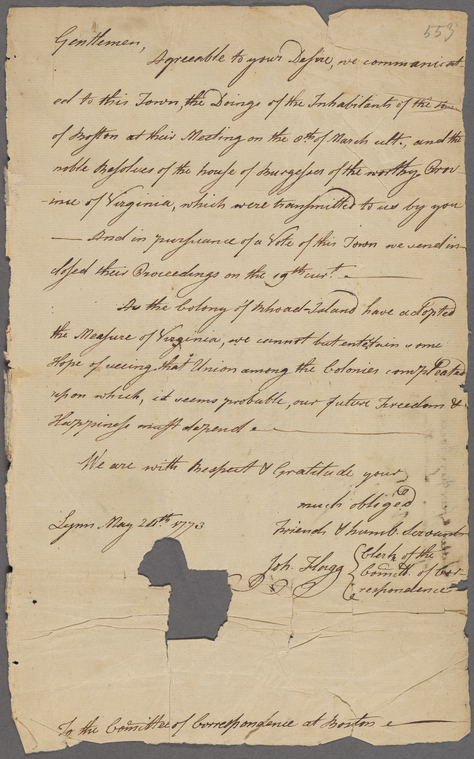 553
Gentlemen,
Agreeable to your Desire, we communicat
ed to this Town, the Doings of the Inhabitants of the Town
of Boston at their Meeting on the 8th of March ult., and the
noble Resolves of the house of Burgesses of the worthy Prov
-ince of Virginia, which were transmitted to us by you
— And in pursuance of a Vote of this Town we send in
closed their Proceedings on the 19th curt. —
As the Colony of Rhoad-Island have adopted
the Measure of Virginia, we cannot but entertain some
Hope of seeing that Union among the Colonies compleated
upon which, it seems probable, our future Freedom &
Happiness must depend.
We are with Respect & Gratitude your
much obliged
Lynn May 24th 1773 Friends & humb Servants
Joh. Flagg { Clerk of the
Comitt. of Cor-
respondence
To the Comittee of Correspondence at Boston